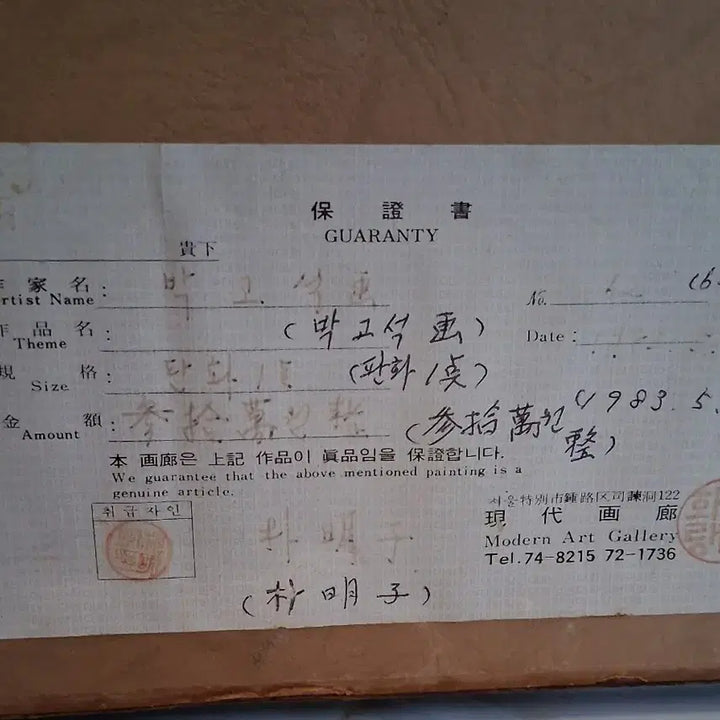 保 證 書
GUARANTY
貴下
家 名 :
Artist Name
박 고 석 画
No.
(6
作 品 名 :
Theme
(박고석 画)
Date :
規 格 :
Size
판화 1点
(판화 1点)
金 額 :
Amount
参拾萬원整
(参拾萬원整)
(1983. 5.
本 画廊은 上記 作品이 眞品임을 保證합니다.
We guarantee that the above mentioned painting is a
genuine article.
취 급 자 인
朴 明 子
(朴 明 子)
서울特別市鍾路区司諫洞122
現 代 画 廊
Modern Art Gallery
Tel.74-8215 72-1736